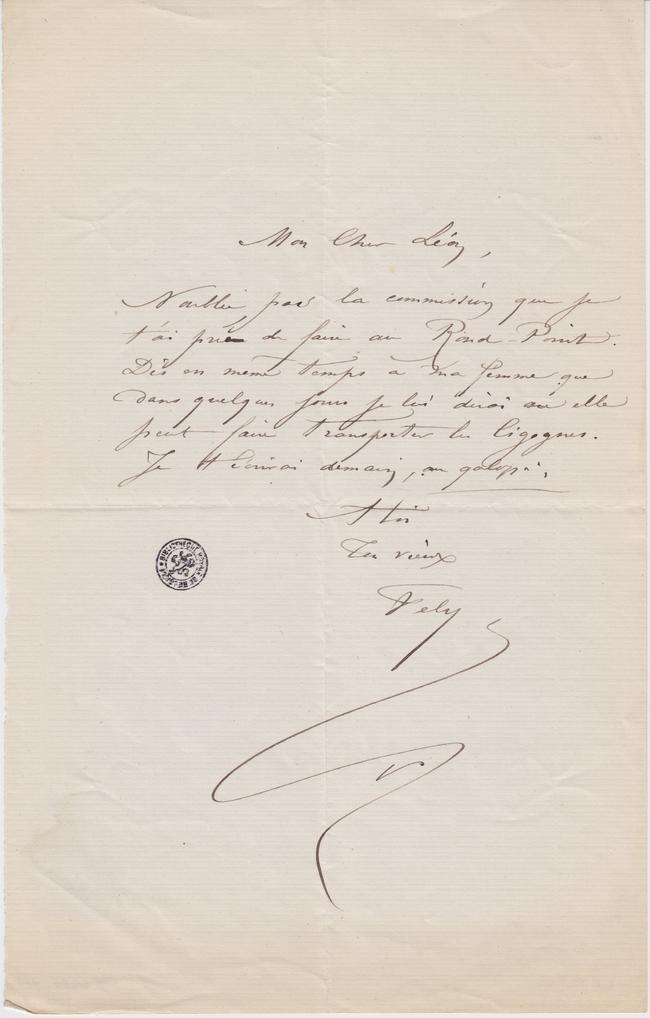 Mon Cher Léon,
N'oublie pas la commission que je
t'ai prié de faire au Rond-Point.
Dis en même temps à ma femme que
dans quelques jours je lui dirai où elle
peut faire transporter les Cigognes.
Je t'écrirai demain, au galop.
A toi
Ton vieux
Fély
BIBLIOTHÈQUE ROYALE DE BELGIQUE